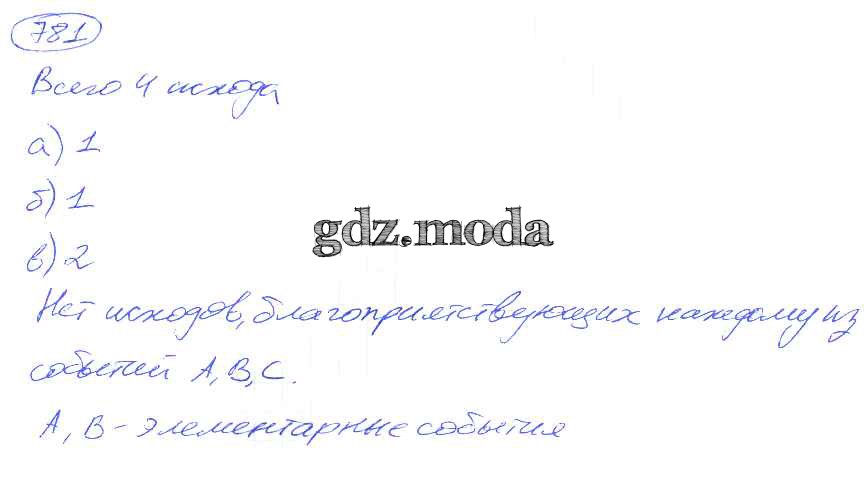 781
Всего 4 исхода
а) 1
б) 1
в) 2
gdz.moda
Нет исходов, благоприятствующих каждому из
событий А, В, С.
А, В - элементарные события